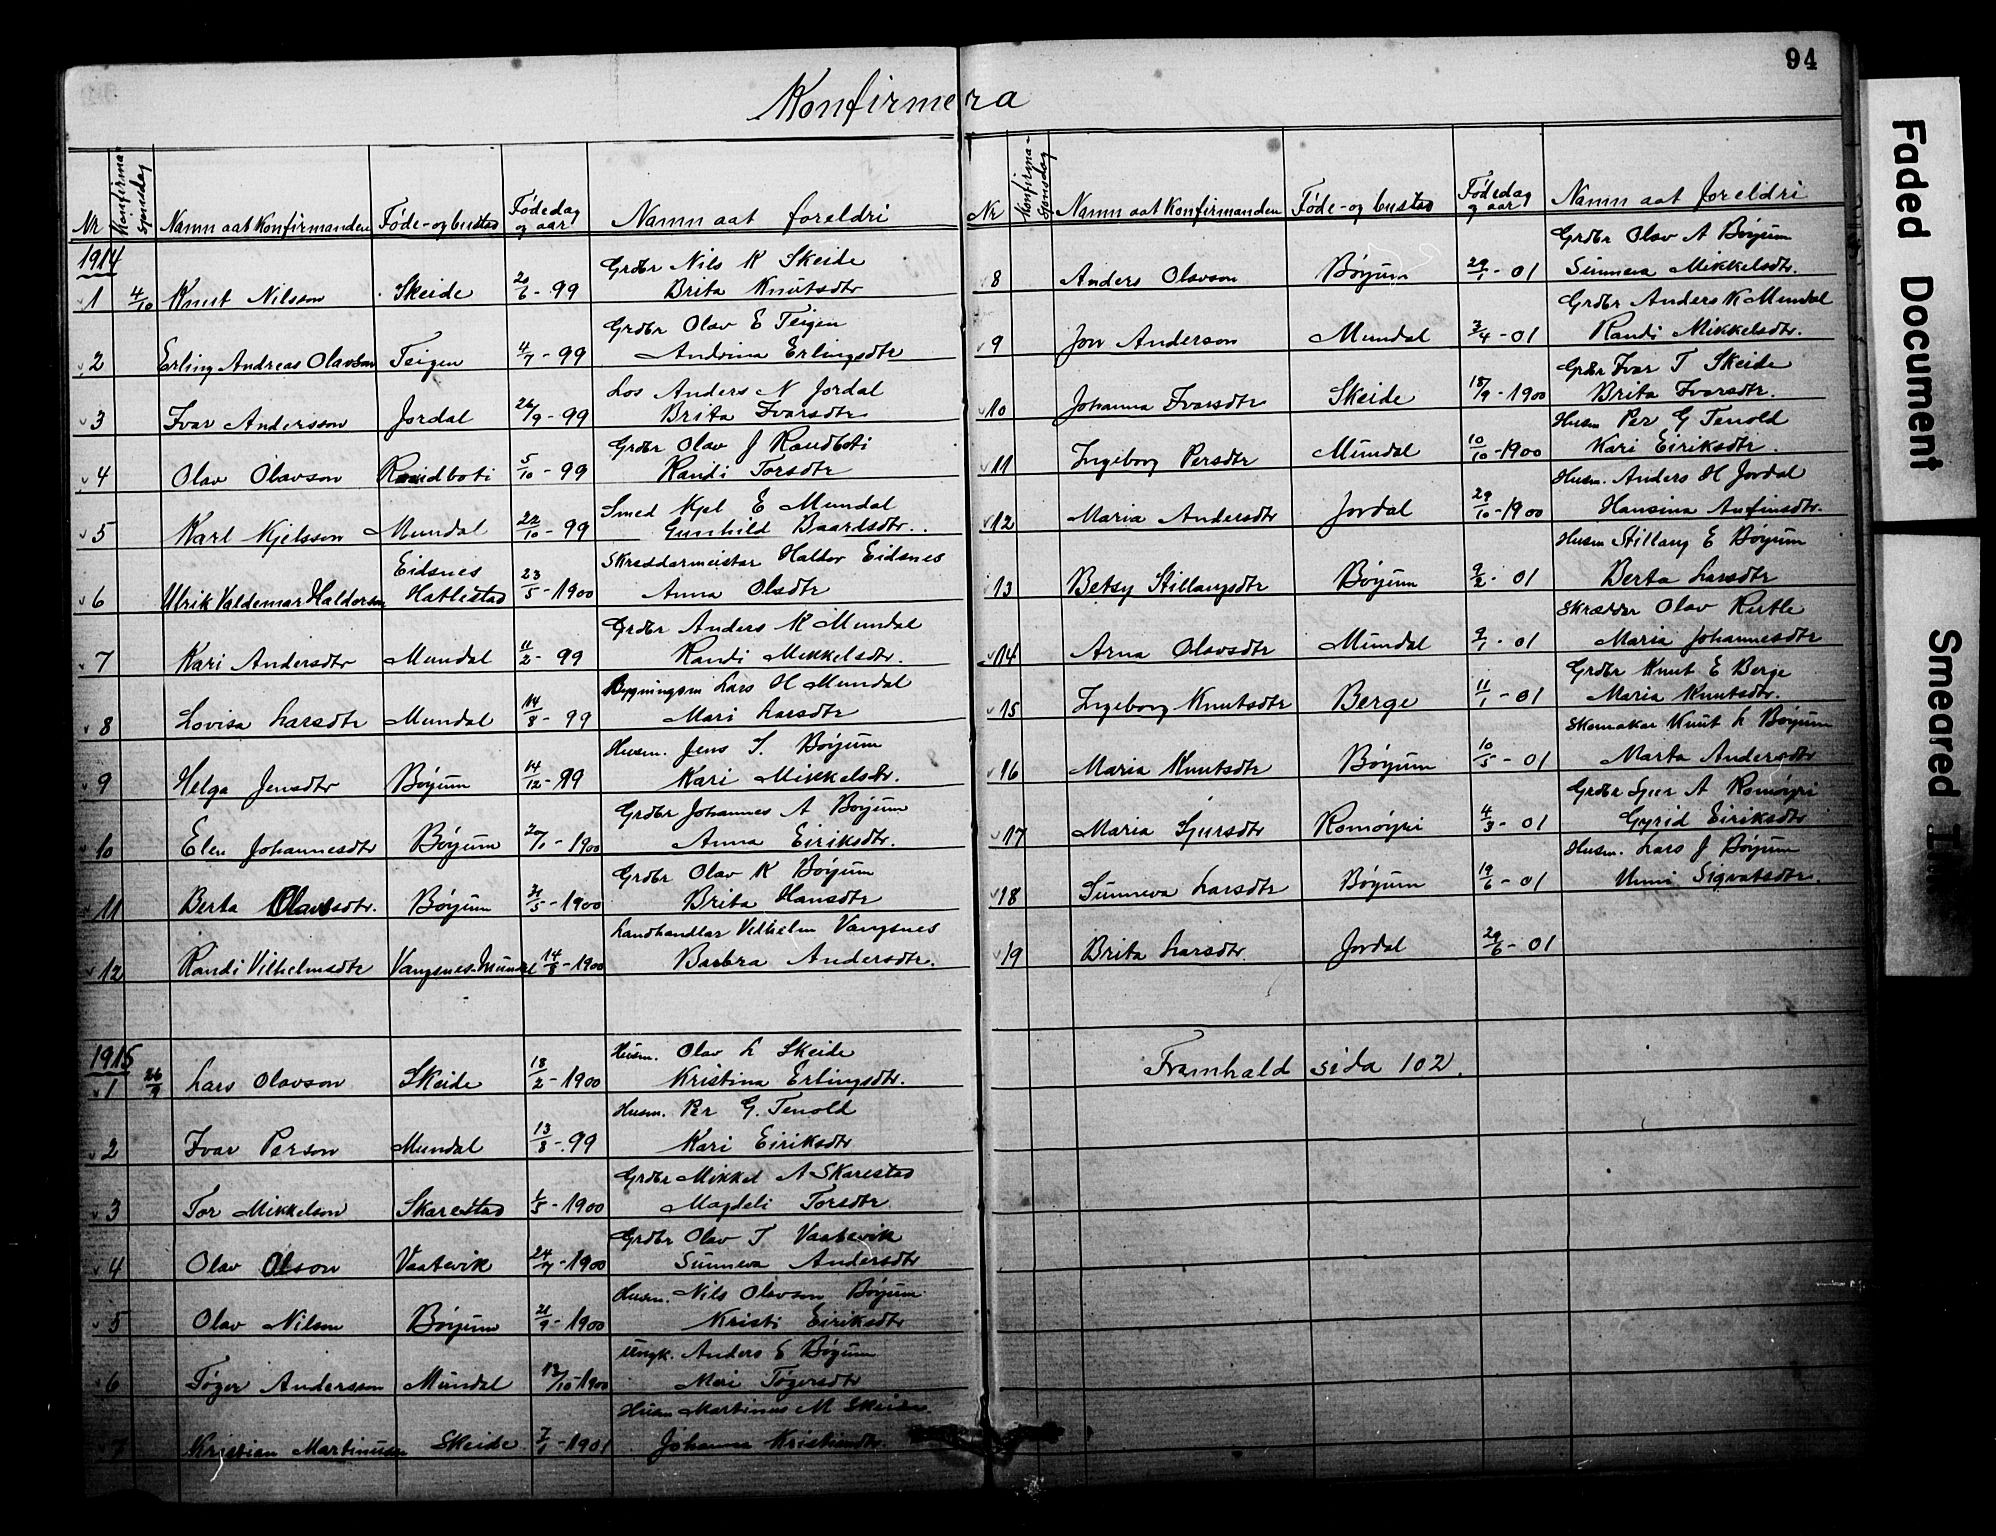 94
Konfirmera
Nr Konfirmasjonsdag Namn aat Konfirmanden Føde- og bustad Fødedag og aar Namn aat foreldri
1914
Grdbr Nils K Skeide
1 4/10 Knut Nilsson Skeide 20/6 - 99 Brita Knutsdtr
Grdbr Olav E Teigen
2 Erling Andreas Olavson Teigen 4/7 - 99 Andrina Erlingsdtr
Los Anders N Jordal
3 Ivar Andersson Jordal 26/9 - 99 Brita Ivarsdtr
Grdbr Olav J Randboti
4 Olav Olavson Randboti 5/10 - 99 Randi Torsdtr
Smed Kjel E Mundal
5 Karl Kjelsson Mundal 22/10 - 99 Gunhild Baardsdtr.
Eidsnes Skreddarmeister Haldor Eidsnes
6 Ulrik Valdemar Haldorson Hatlestad 23/5 - 1900 Anna Olsdtr
Grdbr Anders K Mundal
7 Kari Andersdtr Mundal 11/2 - 99 Randi Mikkelsdtr.
Bygningsm Lars H Mundal
8 Lovisa Larsdtr Mundal 14/8 - 99 Mari Larsdtr
Husm. Jens S. Bøyum
9 Helga Jensdtr Bøyum 14/12 - 99 Kari Mikkelsdtr.
Grdbr Johannes A Bøyum
10 Elen Johannesdtr Bøyum 20/1 - 1900 Anna Eiriksdtr.
Grdbr Olav K Bøyum
11 Berta Olavsdtr. Bøyum /5 - 1900 Brita Hansdtr
Landhandlar Vilhelm Vangsnes
12 Randi Vilhelmsdtr Vangsnes-Mundal 14/8 - 1900 Barbra Andersdtr.
1915
Husm. Olav L Skeide
1 26/9 Lars Olavson Skeide 18/2 - 1900 Kristina Erlingsdtr.
Husm. Per G. Tenold
2 Ivar Person Mundal 13/8 - 99 Kari Eiriksdtr
Grdbr Mikkel A Skarestad
3 Tor Mikkelson Skarestad 1/5 - 1900 Magdeli Torsdtr
Grdbr Olav T Vaatevik
4 Olav Olson Vaatevik 24/7 - 1900 Sunneva Andersdtr
Husm. Nils Olavson Bøyum
5 Olav Nilson Bøyum 21/9 - 1900 Kristi Eiriksdtr
Ungk. Anders E Bøyum
6 Tøger Andersson Mundal 12/10 - 1900 Mari Tøgersdtr
Husm Martinus M Skeide
7 Kristian Martinusson Skeide 7/1 - 1901 Johanna Kristiandtr
Nr Konfirmasjonsdag Namn aat Konfirmanden Føde- og bustad Fødedag og aar Namn aat foreldri
Grdbr Olav A Bøyum
8 Anders Olavson Bøyum 29/1 - 01 Sunneva Mikkelsdtr.
Grdbr Anders K Mundal
9 Jon Anderson Mundal 3/4 - 01 Randi Mikkelsdtr.
Grdbr Ivar T Skeide
10 Johanna Ivarsdtr Skeide 18/9 - 1900 Brita Ivarsdtr.
Husm Per G Tenold
11 Ingeborg Persdtr Mundal 10/10 - 1900 Kari Eiriksdtr.
Husm. Anders H Jordal
12 Maria Andersdtr Jordal 29/10 - 1900 Hansina Anfinsdtr.
Husm Stillaug E Bøyum
13 Betsy Stillaugsdtr Bøyum 9/2 - 01 Berta Larsdtr
Skrædder Olav Kurtle
14 Arna Olavsdtr Mundal 9/1 - 01 Maria Johannesdtr
Grdbr Knut E Berge
15 Ingeborg Knutsdtr Berge 11/1 - 01 Maria Knutsdtr.
Skomakar Knut L Bøyum
16 Maria Knutsdtr Bøyum 10/5 - 01 Marta Andersdtr
Grdbr Sjur A Romøyri
17 Maria Sjursdtr Romøyri 4/3 - 01 Gyrid Eiriksdtr
Husm. Lars J Bøyum
18 Sunneva Larsdtr Bøyum 19/6 - 01 Unni Sigvatsdtr.
19 Brita Larsdtr Jordal 29/6 - 01
Framhald sida 102.
Faded Document
Smeared